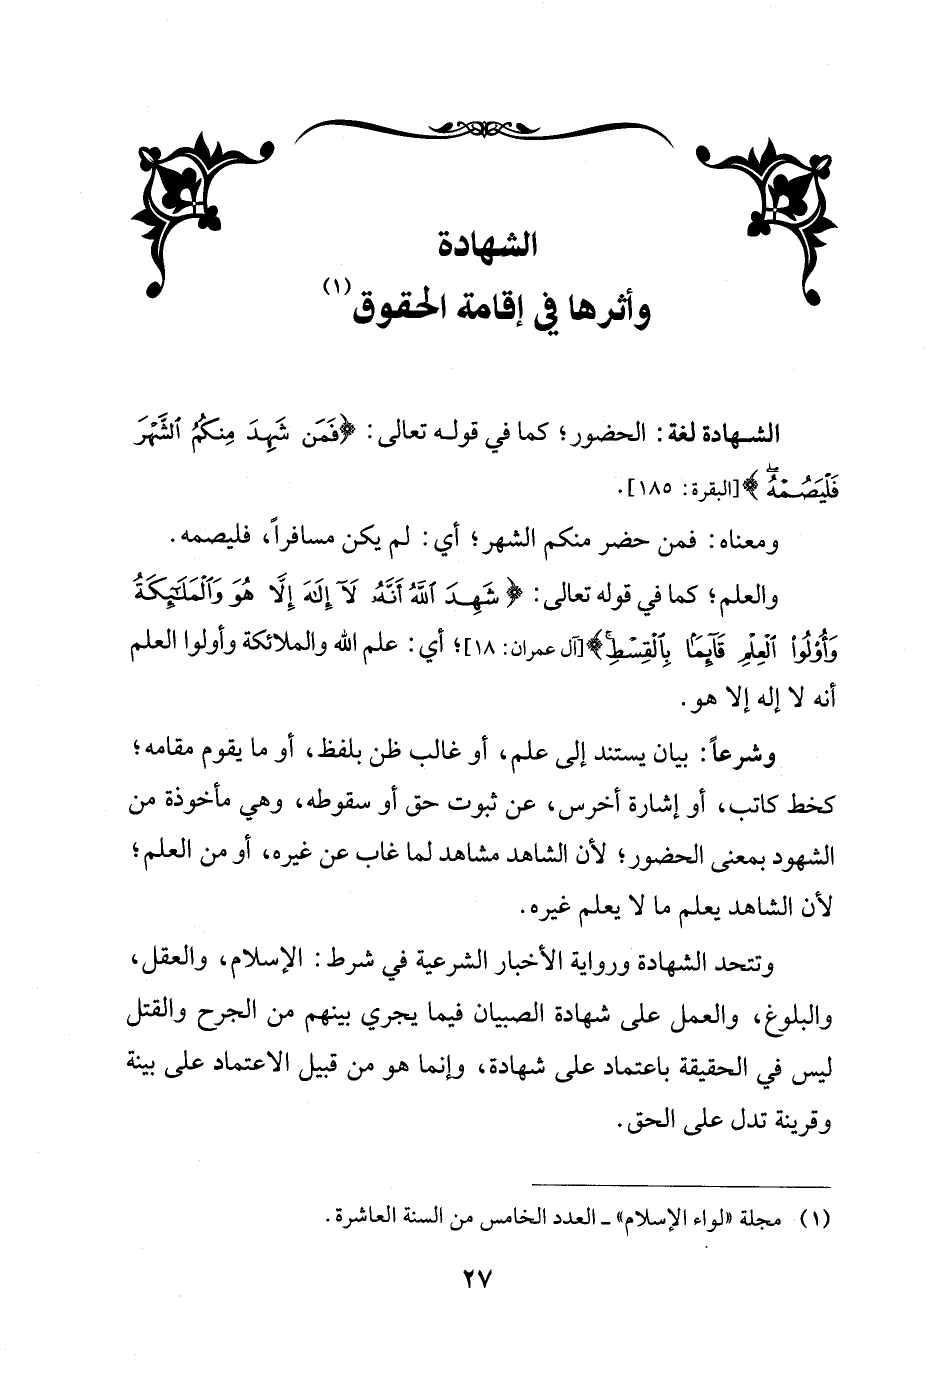 الشهادة
وأثرها في إقامة الحقوق (١)
الشهادة لغة: الحضور؛ كما في قوله تعالى: ﴿فَمَن شَهِدَ مِنكُمُ ٱلشَّهْرَ
فَلْيَصُمْهُ ۖ﴾[البقرة: ١٨٥].
ومعناه: فمن حضر منكم الشهر؛ أي: لم يكن مسافراً، فليصمه.
والعلم؛ كما في قوله تعالى: ﴿شَهِدَ ٱللَّهُ أَنَّهُۥ لَآ إِلَٰهَ إِلَّا هُوَ وَٱلْمَلَٰٓئِكَةُ
وَأُو۟لُوا۟ ٱلْعِلْمِ قَآئِمًۢا بِٱلْقِسْطِ ۚ﴾[آل عمران: ١٨]؛ أي: علم الله والملائكة وأولوا العلم
أنه لا إله إلا هو.
وشرعاً: بيان يستند إلى علم، أو غالب ظن بلفظ، أو ما يقوم مقامه؛
كخط كاتب، أو إشارة أخرس، عن ثبوت حق أو سقوطه، وهي مأخوذة من
الشهود بمعنى الحضور؛ لأن الشاهد مشاهد لما غاب عن غيره، أو من العلم؛
لأن الشاهد يعلم ما لا يعلم غيره.
وتتحد الشهادة ورواية الأخبار الشرعية في شرط: الإسلام، والعقل،
والبلوغ، والعمل على شهادة الصبيان فيما يجري بينهم من الجرح والقتل
ليس في الحقيقة باعتماد على شهادة، وإنما هو من قبيل الاعتماد على بينة
وقرينة تدل على الحق.
(١) مجلة «لواء الإسلام» ـ العدد الخامس من السنة العاشرة.
٢٧